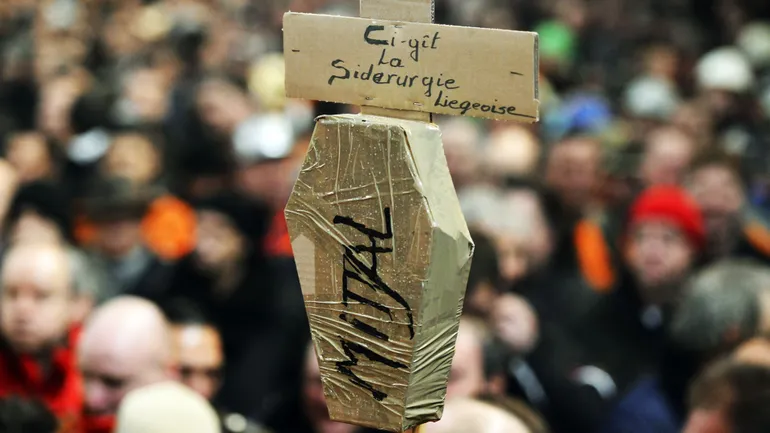 Ci-gît
La
Siderurgie
Liegeoise
MITTAL